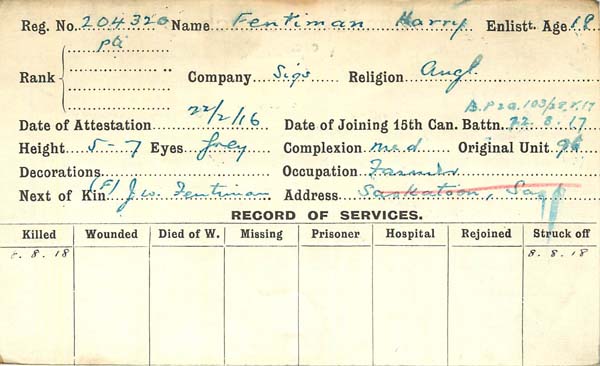 Reg. No. 204320 Name Fentiman Harry Enlistt. Age 19
Pte
Rank Company Sigs Religion Angl.
B.P2O. 103/28.8.17
Date of Attestation 22/2/16 Date of Joining 15th Can. Battn. 22.8.17
Height 5-7 Eyes Grey Complexion Med Original Unit 96
Decorations Occupation Farmer
Next of Kin (F) J.W. Fentiman Address Saskatoon, Sask
RECORD OF SERVICES.
Killed Wounded Died of W. Missing Prisoner Hospital Rejoined Struck off
8.8.18 8.8.18